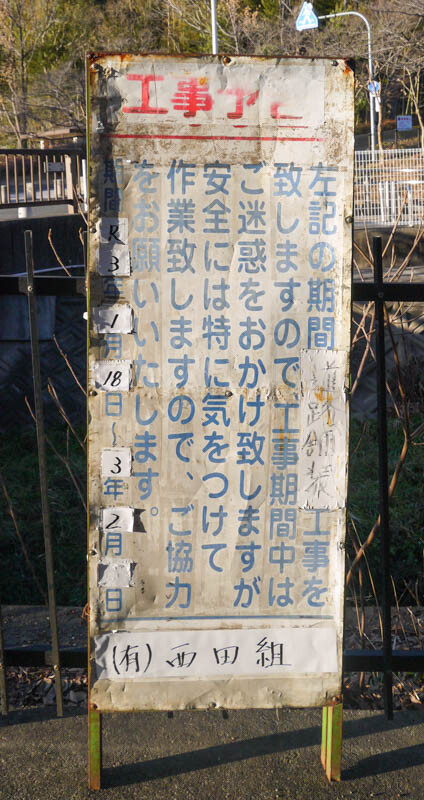 工事予
左記の期間道路舗装工事を
致しますので工事期間中は
ご迷惑をおかけ致しますが
安全には特に気をつけて
作業致しますので、ご協力
をお願いいたします。
期間 R3年1月18日〜3年2月 日
(有)西田組